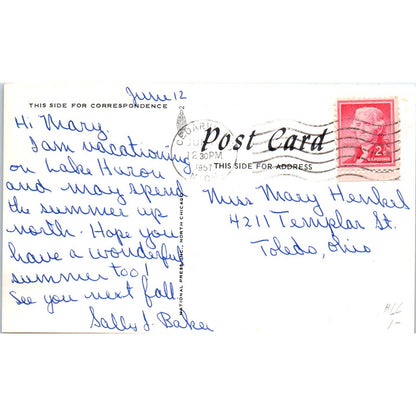 June 12
THIS SIDE FOR CORRESPONDENCE
Hi Mary,
I am vacationing
on Lake Huron
and may spend
the summer up
north. Hope you
have a wonderful
summer too!
See you next fall
Sally J. Baker
NATIONAL PRESS, INC. NORTH CHICAGO
Post Card
THIS SIDE FOR ADDRESS
230PM
1957
2¢
Miss Mary Henkel
4211 Templar St.
Toledo, Ohio
1-